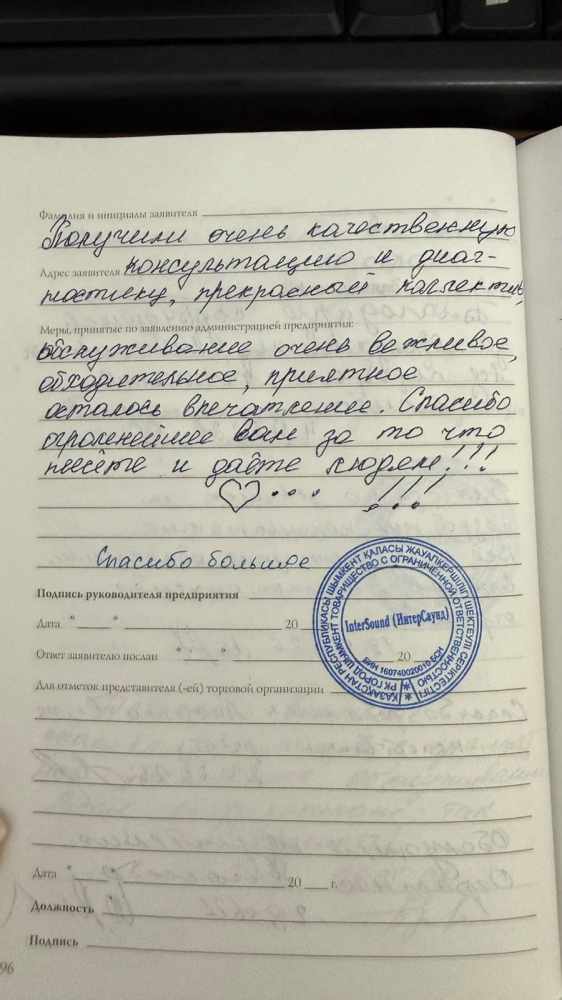 Фамилия и инициалы заявителя
Получили очень качественную
Адрес заявителя консультацию и диаг-
ностику, прекрасный коллектив,
Меры, принятые по заявлению администрацией предприятия:
обслуживание очень вежливое,
обходительное, приятное
осталось впечатление. Спасибо
огромнейшее вам за то что
несёте и даёте людям!!!
♡... !!!
Спасибо большое
Подпись руководителя предприятия
Дата " " 20
Ответ заявителю послан " " 20
Для отметок представителя (-ей) торговой организации
ҚАЗАҚСТАН РЕСПУБЛИКАСЫ ШЫМКЕНТ ҚАЛАСЫ ЖАУАПКЕРШІЛІГІ ШЕКТЕУЛІ СЕРІКТЕСТІГІ
РК ГОРОД ШЫМКЕНТ ТОВАРИЩЕСТВО С ОГРАНИЧЕННОЙ ОТВЕТСТВЕННОСТЬЮ
InterSound (ИнтерСаунд)
БИН 160740020010 БСН
Дата " " 20 г.
Должность
Подпись
96